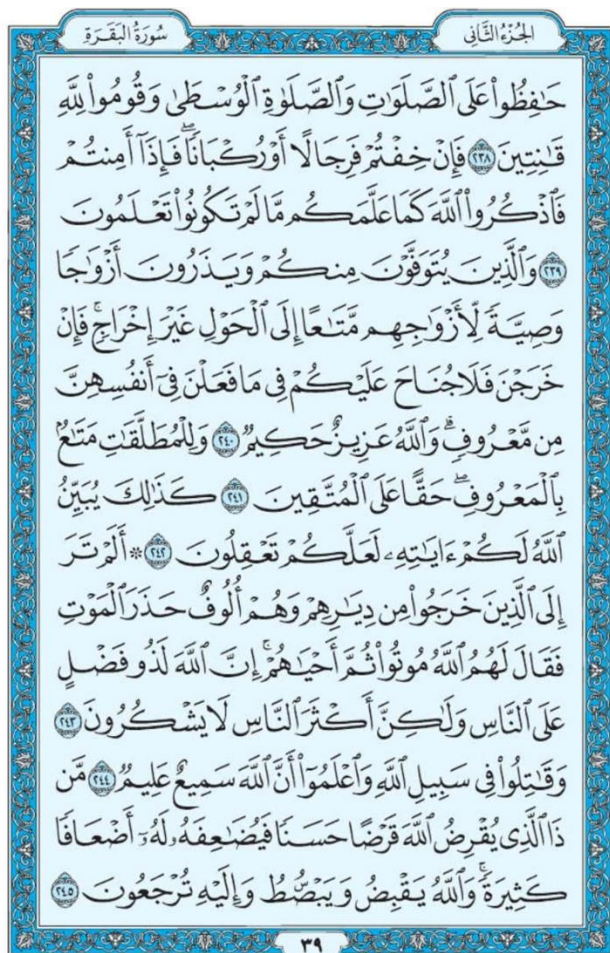 الجُزْءُ الثَّانِي
سُورَةُ البَقَرَةِ
حَٰفِظُوا۟ عَلَى ٱلصَّلَوَٰتِ وَٱلصَّلَوٰةِ ٱلْوُسْطَىٰ وَقُومُوا۟ لِلَّهِ
قَٰنِتِينَ ٢٣٨ فَإِنْ خِفْتُمْ فَرِجَالًا أَوْ رُكْبَانًا ۖ فَإِذَآ أَمِنتُمْ
فَٱذْكُرُوا۟ ٱللَّهَ كَمَا عَلَّمَكُم مَّا لَمْ تَكُونُوا۟ تَعْلَمُونَ
٢٣٩ وَٱلَّذِينَ يُتَوَفَّوْنَ مِنكُمْ وَيَذَرُونَ أَزْوَٰجًا
وَصِيَّةً لِّأَزْوَٰجِهِم مَّتَٰعًا إِلَى ٱلْحَوْلِ غَيْرَ إِخْرَاجٍ ۚ فَإِنْ
خَرَجْنَ فَلَا جُنَاحَ عَلَيْكُمْ فِى مَا فَعَلْنَ فِىٓ أَنفُسِهِنَّ
مِن مَّعْرُوفٍ ۗ وَٱللَّهُ عَزِيزٌ حَكِيمٌ ٢٤٠ وَلِلْمُطَلَّقَٰتِ مَتَٰعٌۢ
بِٱلْمَعْرُوفِ ۖ حَقًّا عَلَى ٱلْمُتَّقِينَ ٢٤١ كَذَٰلِكَ يُبَيِّنُ
ٱللَّهُ لَكُمْ ءَايَٰتِهِۦ لَعَلَّكُمْ تَعْقِلُونَ ٢٤٢ ۞ أَلَمْ تَرَ
إِلَى ٱلَّذِينَ خَرَجُوا۟ مِن دِيَٰرِهِمْ وَهُمْ أُلُوفٌ حَذَرَ ٱلْمَوْتِ
فَقَالَ لَهُمُ ٱللَّهُ مُوتُوا۟ ثُمَّ أَحْيَٰهُمْ ۚ إِنَّ ٱللَّهَ لَذُو فَضْلٍ
عَلَى ٱلنَّاسِ وَلَٰكِنَّ أَكْثَرَ ٱلنَّاسِ لَا يَشْكُرُونَ ٢٤٣
وَقَٰتِلُوا۟ فِى سَبِيلِ ٱللَّهِ وَٱعْلَمُوٓا۟ أَنَّ ٱللَّهَ سَمِيعٌ عَلِيمٌ ٢٤٤ مَّن
ذَا ٱلَّذِى يُقْرِضُ ٱللَّهَ قَرْضًا حَسَنًا فَيُضَٰعِفَهُۥ لَهُۥٓ أَضْعَافًا
كَثِيرَةً ۚ وَٱللَّهُ يَقْبِضُ وَيَبْصُۜطُ وَإِلَيْهِ تُرْجَعُونَ ٢٤٥
٣٩